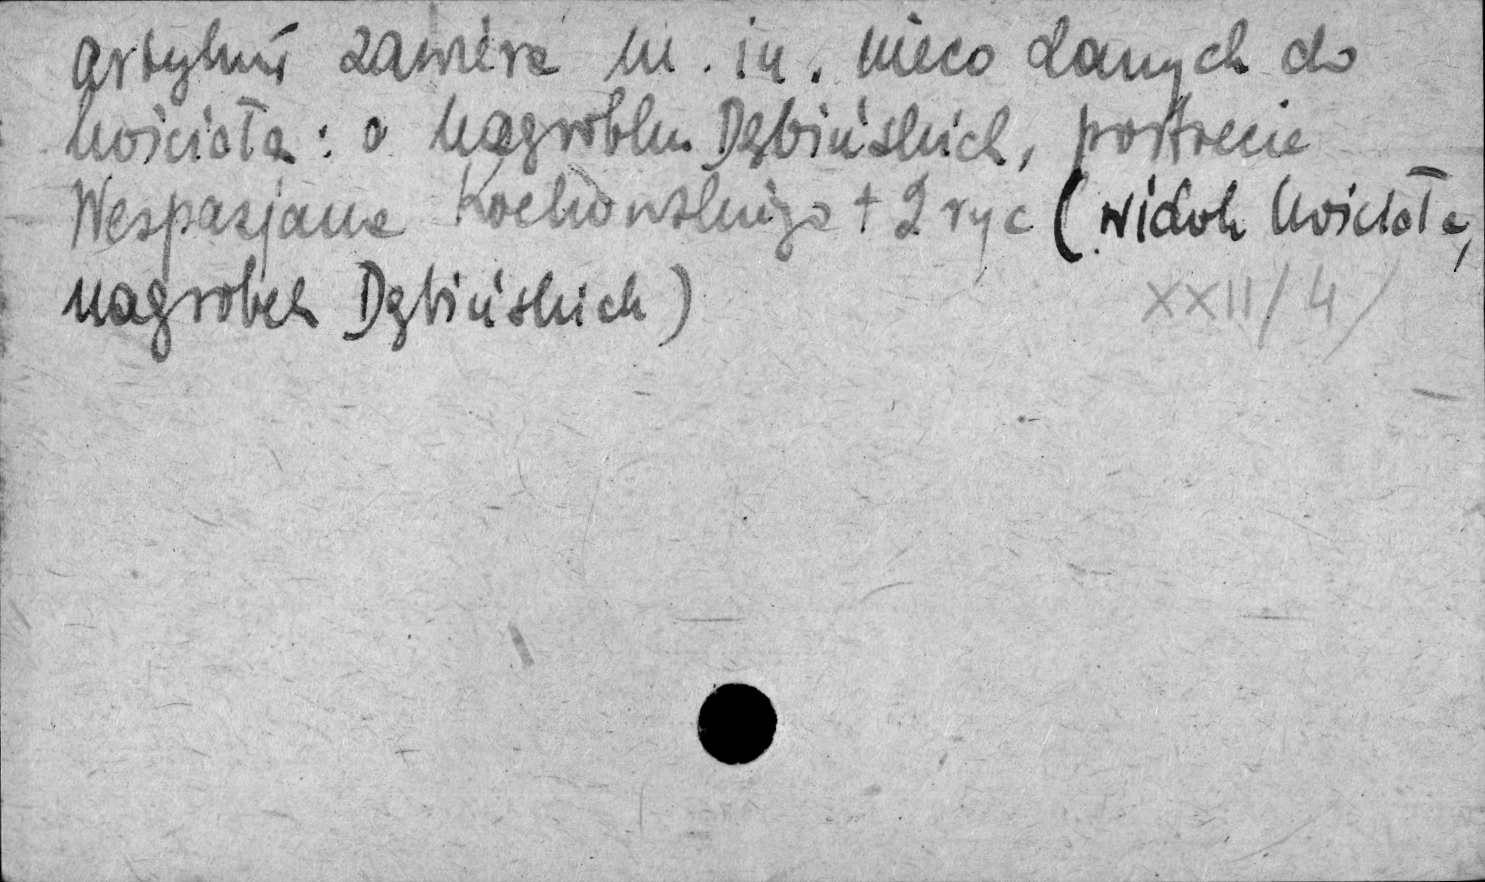 artykuł zawiera m. in. nieco danych do
kościoła: o nagrobku Dębińskich, portrecie
Wespazjana Kochowskiego + 2 ryc (widok kościoła,
nagrobek Dębińskich)
XXII/4/